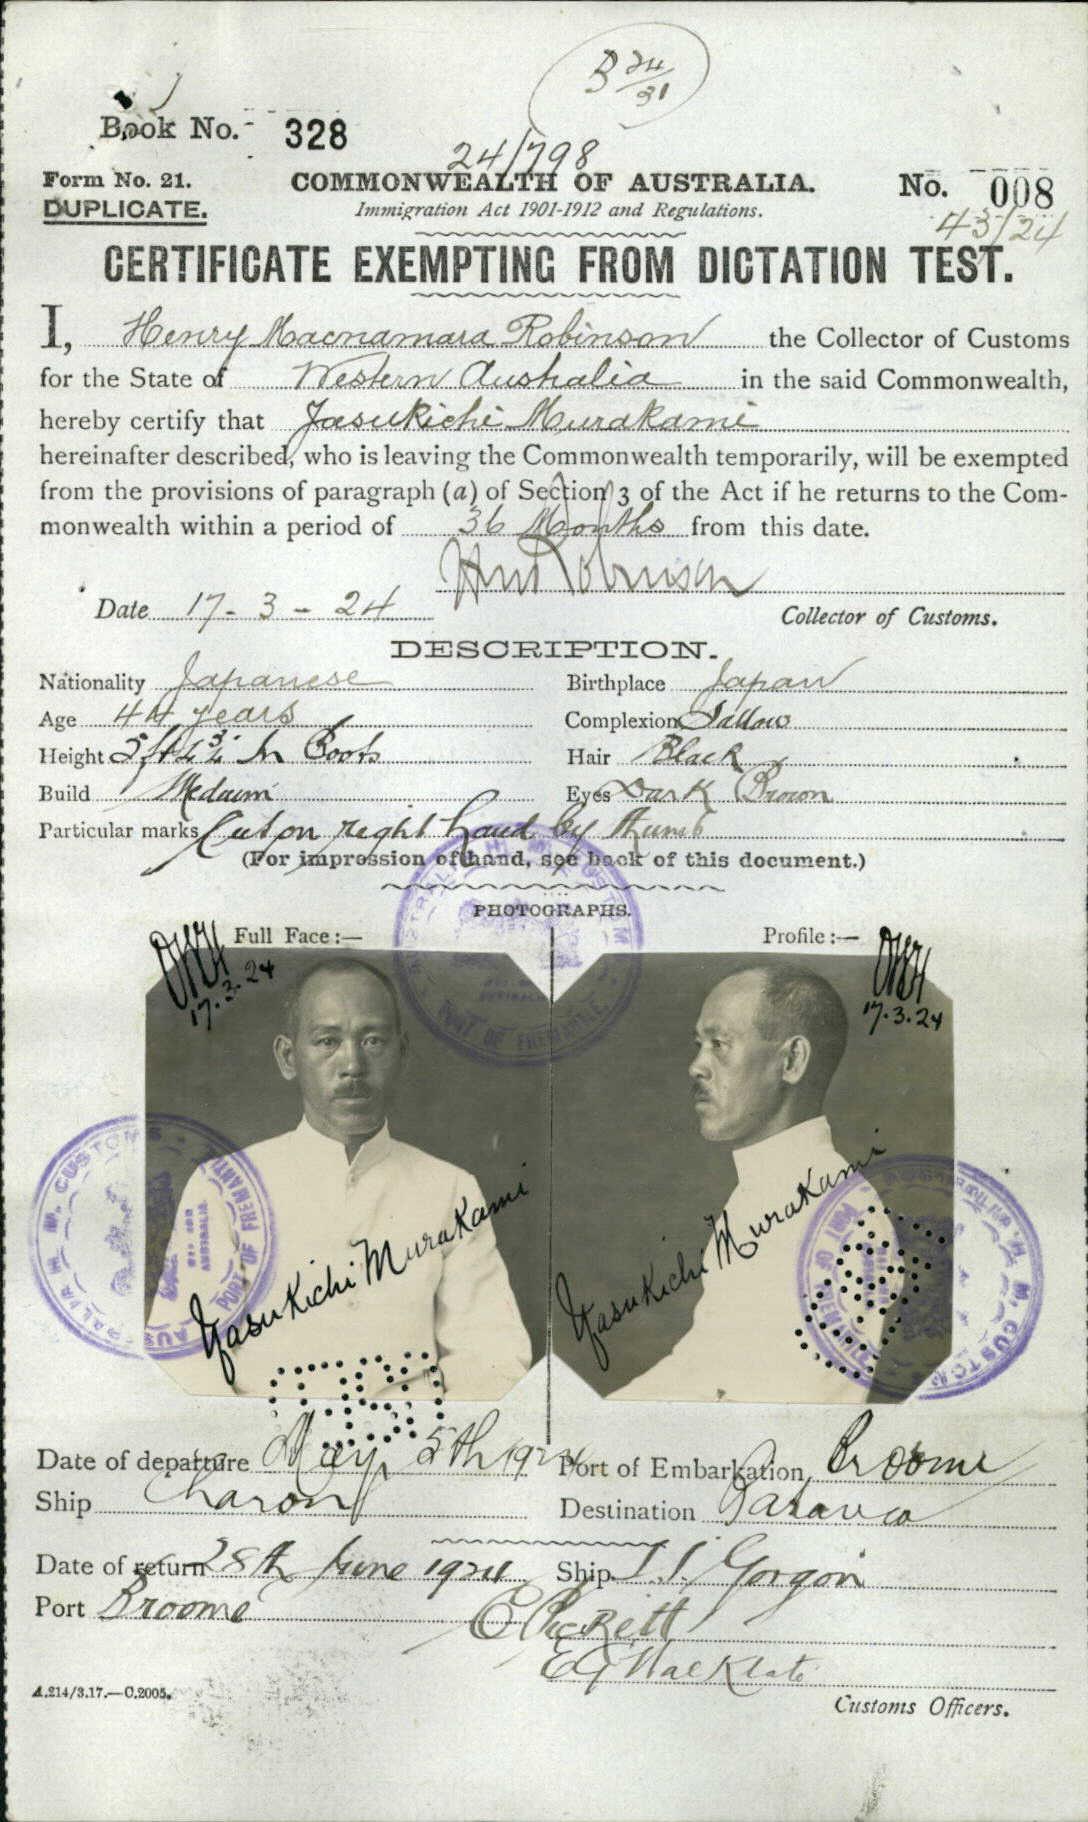 B 24/31
Book No. 328
24/798
Form No. 21. COMMONWEALTH OF AUSTRALIA. No. 008
DUPLICATE. Immigration Act 1901-1912 and Regulations. 43/24
CERTIFICATE EXEMPTING FROM DICTATION TEST.
I, Henry Macnamara Robinson the Collector of Customs
for the State of Western Australia in the said Commonwealth,
hereby certify that Yasukichi Murakami
hereinafter described, who is leaving the Commonwealth temporarily, will be exempted
from the provisions of paragraph (a) of Section 3 of the Act if he returns to the Com-
monwealth within a period of 36 Months from this date.
HM Robinson
Date 17-3-24 Collector of Customs.
DESCRIPTION.
Nationality Japanese Birthplace Japan
Age 44 years Complexion Sallow
Height In Boots Hair Black
Build Medium Eyes Dark Brown
Particular marks Cut on right hand by thumb
(For impression of hand, see back of this document.)
PHOTOGRAPHS.
Full Face:— Profile:—
17.3.24 17.3.24
H. M. CUSTOMS AUSTRALIA PORT OF FREMANTLE
Yasukichi Murakami Yasukichi Murakami
Date of departure May 5th 1924 Port of Embarkation Broome
Ship Charon Destination Batavia
Date of return 28th June 1924 Ship S.S. Gorgon
Port Broome
Customs Officers.
A.214/3.17.—C.2005.